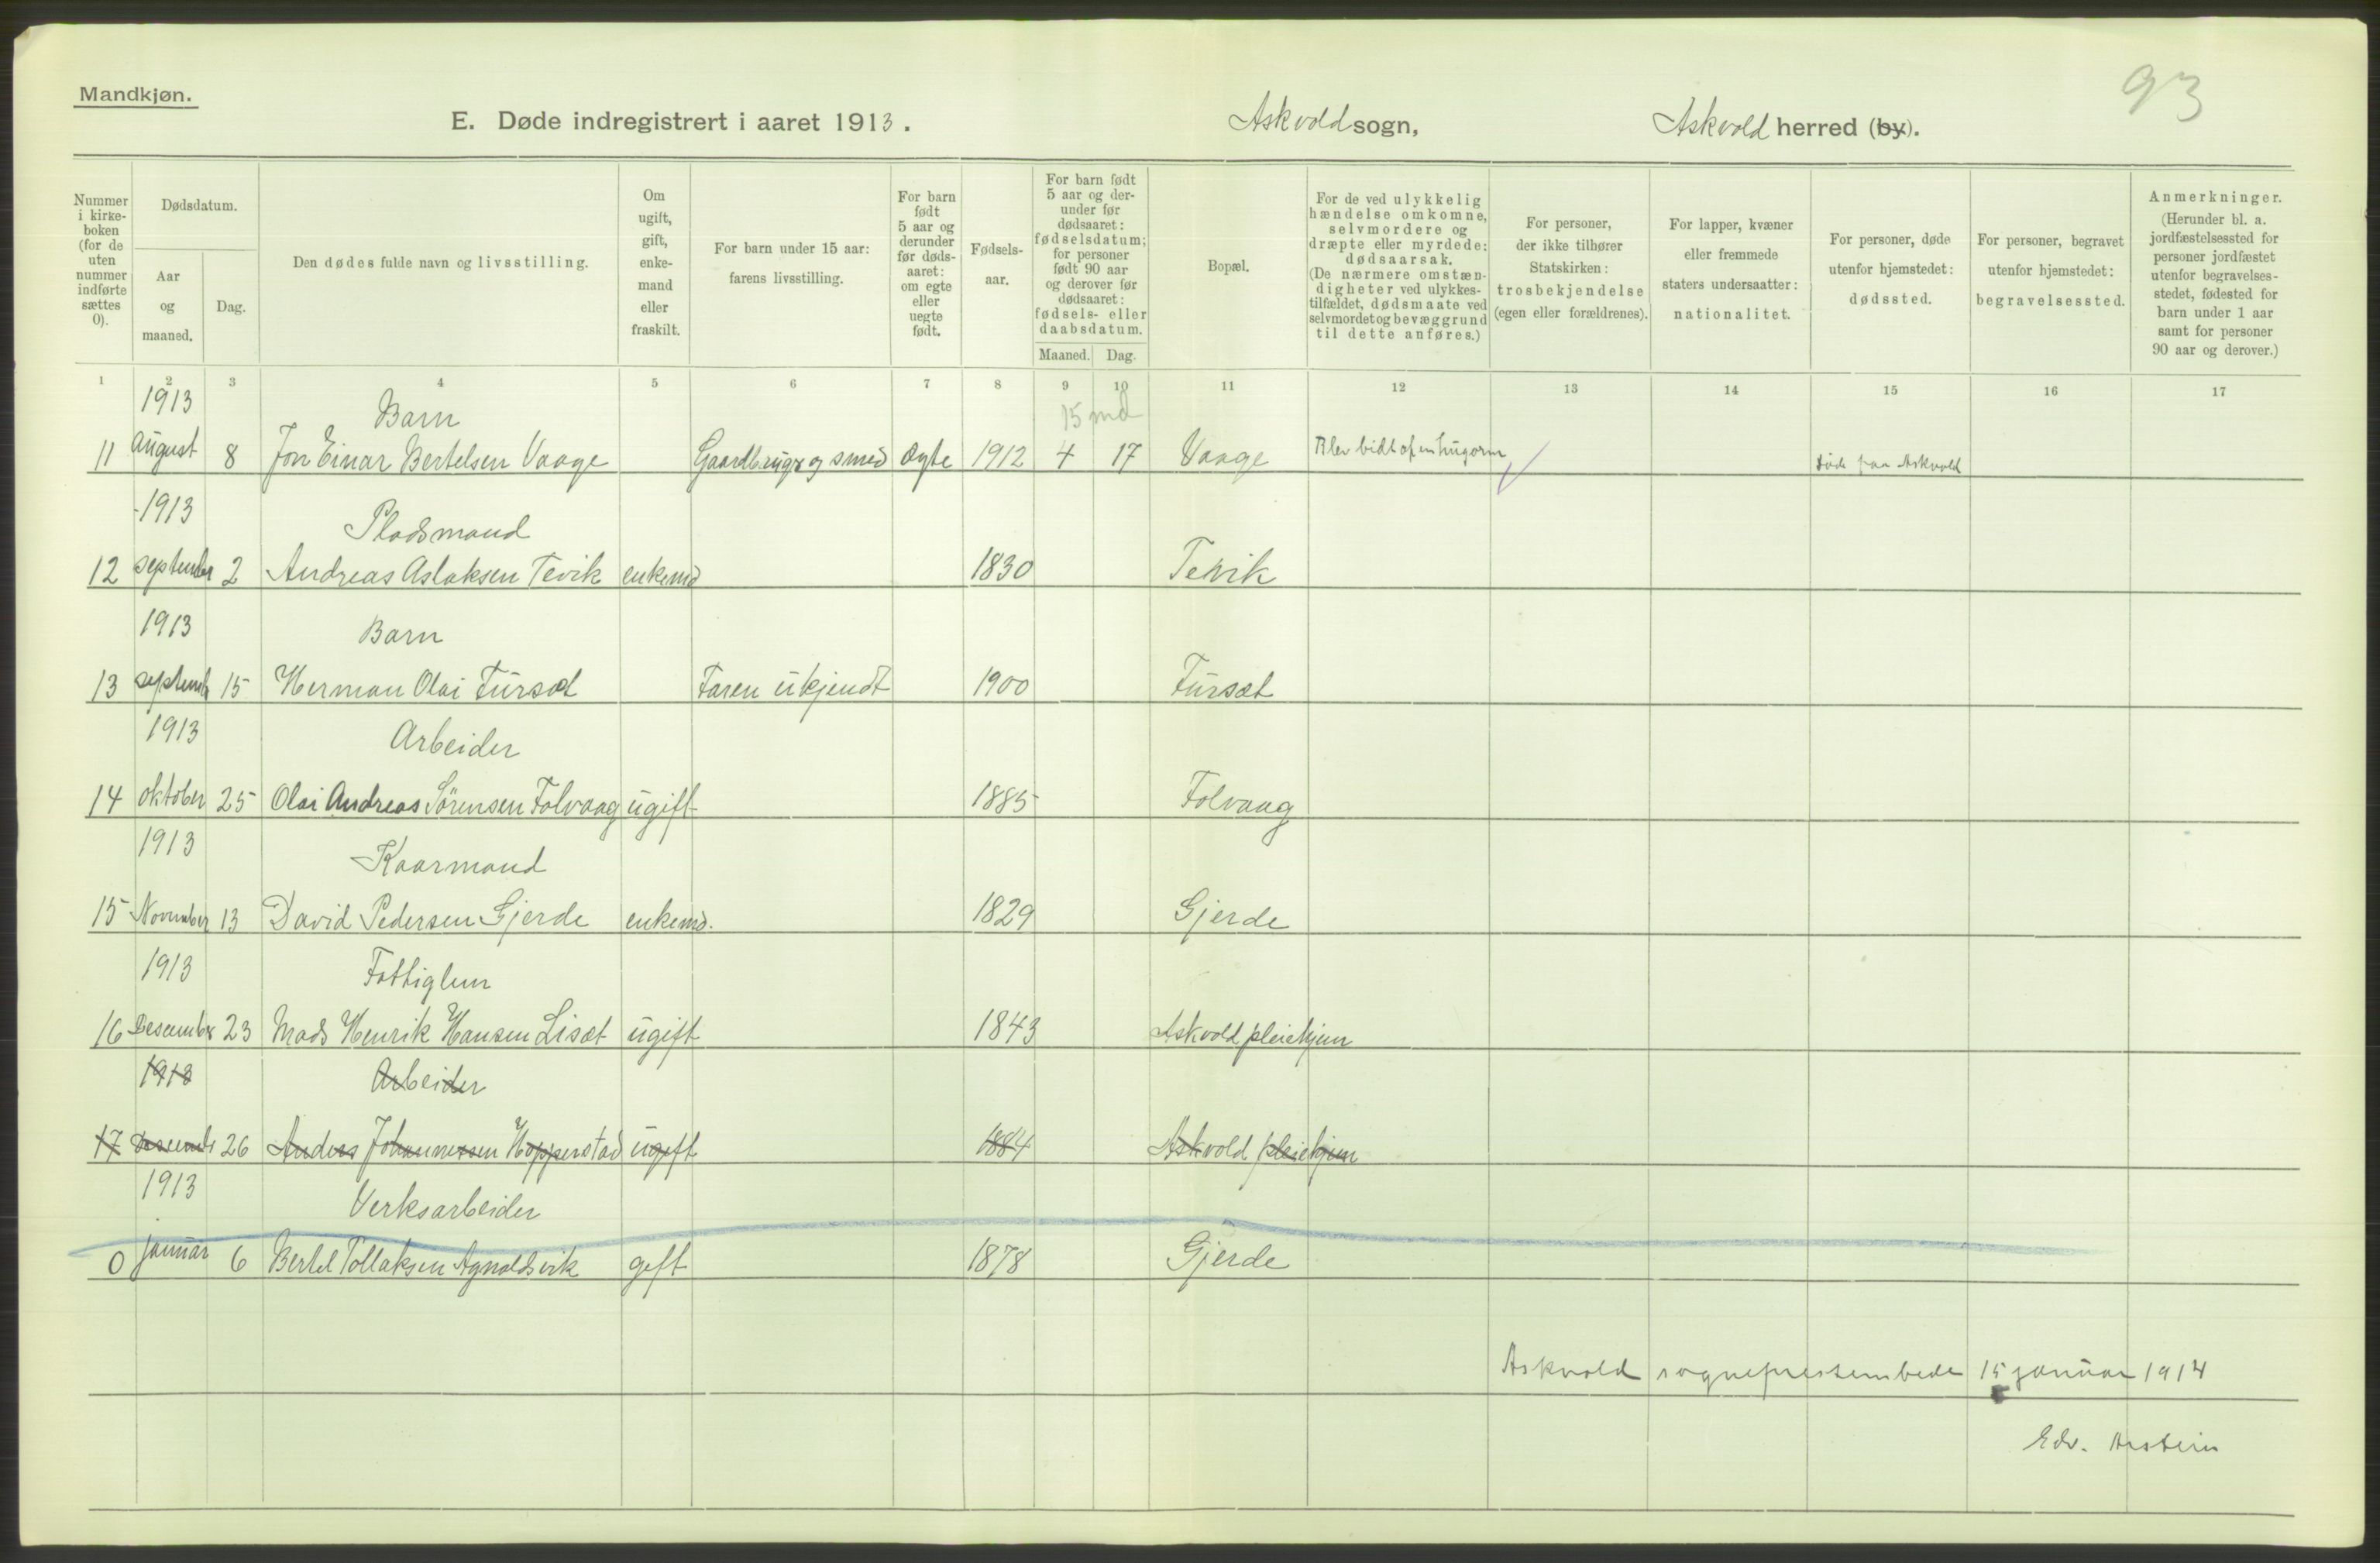 93
Mandkjøn.
E. Døde indregistrert i aaret 1913. Askvold sogn, Askvold herred (by).
Nummer i kirke-boken (for de uten nummer indførte sættes 0).
Dødsdatum.
Aar og maaned.
Dag.
Den dødes fulde navn og livsstilling.
Om ugift, gift, enke-mand eller fraskilt.
For barn under 15 aar: farens livsstilling.
For barn født 5 aar og derunder før døds-aaret: om egte eller uegte født.
Fødsels-aar.
For barn født 5 aar og der-under før dødsaaret: fødselsdatum; for personer født 90 aar og derover før dødsaaret: fødsels- eller daabsdatum.
Maaned. Dag.
Bopæl.
For de ved ulykkelig hændelse omkomne, selvmordere og dræpte eller myrdede: dødsaarsak. (De nærmere omstæn-digheter ved ulykkes-tilfældet, dødsmaate ved selvmordet og bevæggrund til dette anføres.)
For personer, der ikke tilhører Statskirken: trosbekjendelse (egen eller forældrenes).
For lapper, kvæner eller fremmede staters undersaatter: nationalitet.
For personer, døde utenfor hjemstedet: dødssted.
For personer, begravet utenfor hjemstedet: begravelsessted.
Anmerkninger. (Herunder bl. a. jordfæstelsessted for personer jordfæstet utenfor begravelses-stedet, fødested for barn under 1 aar samt for personer 90 aar og derover.)
1 2 3 4 5 6 7 8 9 10 11 12 13 14 15 16 17
1913 Barn 15 md
11 august 8 Jon Einar Bertelsen Vaage Gaardbruger og smed Ægte 1912 4 17 Vaage Blev bidt af en hugorm Døde paa Askvold
1913 Pladsmand
12 september 2 Andreas Aslaksen Tevik enkemd 1830 Tevik
1913 Barn
13 septemb 15 Herman Olai Fürsæt Faren ukjendt 1900 Fürsæt
1913 Arbeider
14 oktober 25 Olai Andreas Sörensen Folvaag ugift 1885 Folvaag
1913 Kaarmand
15 November 13 David Pedersen Gjerde enkemd. 1829 Gjerde
1913 Fattiglem
16 Desember 23 Mads Henrik Hansen Lisæt ugift 1843 Askvold pleiehjem
1913 Arbeider
17 Desemb 26 Anders Johannessen Hopperstad ugift 1884 Askvold pleiehjem
1913 Verksarbeider
0 januar 6 Bertel Tollaksen Agnaldsvik gift 1878 Gjerde
Askvold sogneprestembede 15 januar 1914
Edv. Arstein